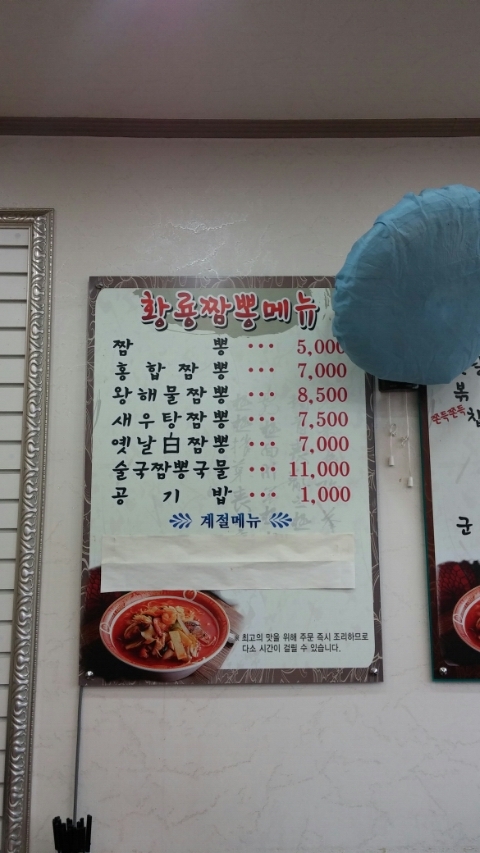 황룡짬뽕메뉴
짬 뽕 ··· 5,000
홍합짬뽕 ··· 7,000
왕해물짬뽕 ··· 8,500
새우탕짬뽕 ··· 7,500
옛날白짬뽕 ··· 7,000
술국짬뽕국물 ··· 11,000
공 기 밥 ··· 1,000
계절메뉴
최고의 맛을 위해 주문 즉시 조리하므로
다소 시간이 걸릴 수 있습니다.
볶
쫀득쫀득
군